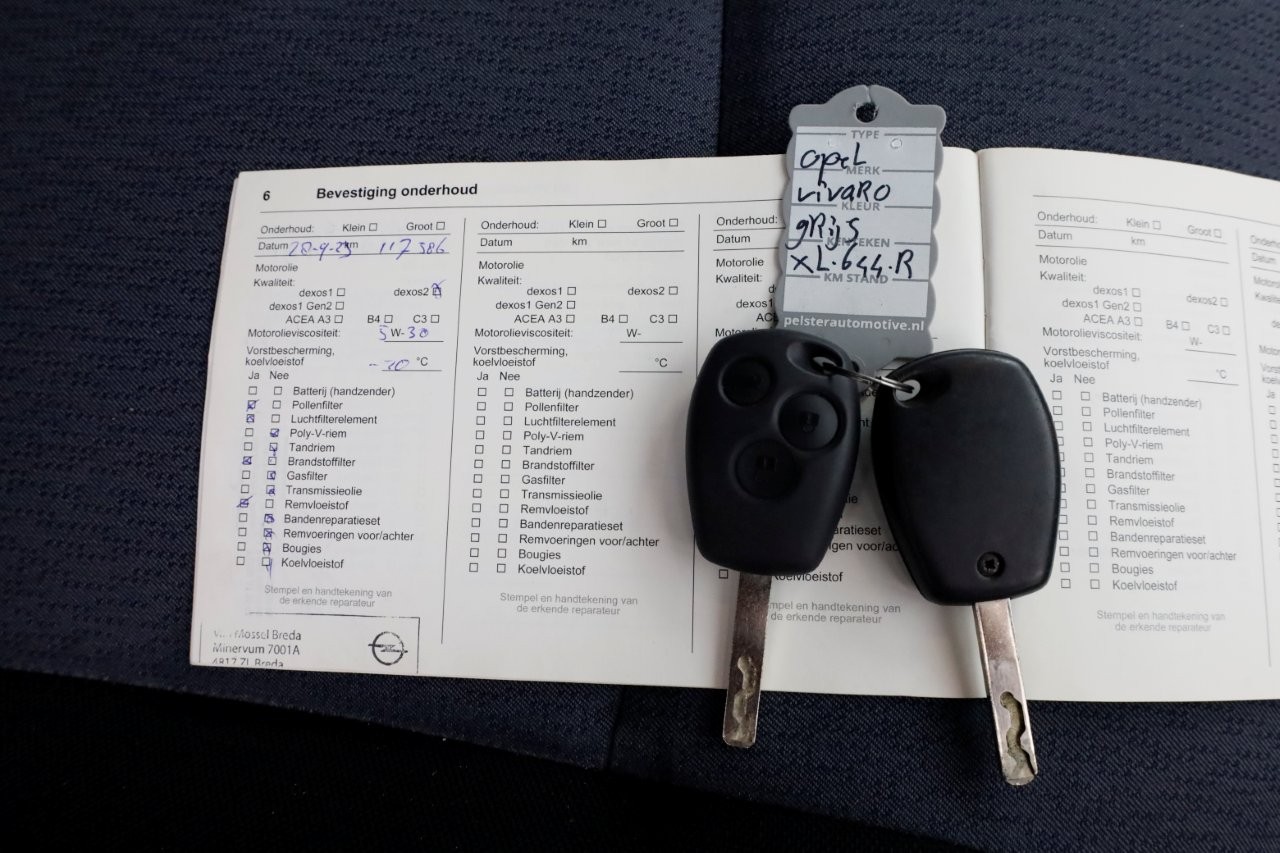 6 Bevestiging onderhoud
Onderhoud: Klein ☐ Groot ☐
Datum 28-9-23 km 117586
Motorolie
Kwaliteit:
dexos1 ☐ dexos2 ☒
dexos1 Gen2 ☐
ACEA A3 ☐ B4 ☐ C3 ☐
Motorolieviscositeit: 5 W-30
Vorstbescherming,
koelvloeistof -30 °C
Ja Nee
Batterij (handzender)
Pollenfilter
Luchtfilterelement
Poly-V-riem
Tandriem
Brandstoffilter
Gasfilter
Transmissieolie
Remvloeistof
Bandenreparatieset
Remvoeringen voor/achter
Bougies
Koelvloeistof
Stempel en handtekening van
de erkende reparateur
Mossel Breda
Minervum 7001A
4817 ZL Breda
Onderhoud: Klein ☐ Groot ☐
Datum km
Motorolie
Kwaliteit:
dexos1 ☐ dexos2 ☐
dexos1 Gen2 ☐
ACEA A3 ☐ B4 ☐ C3 ☐
Motorolieviscositeit: W-
Vorstbescherming,
koelvloeistof °C
Ja Nee
Batterij (handzender)
Pollenfilter
Luchtfilterelement
Poly-V-riem
Tandriem
Brandstoffilter
Gasfilter
Transmissieolie
Remvloeistof
Bandenreparatieset
Remvoeringen voor/achter
Bougies
Koelvloeistof
Stempel en handtekening van
de erkende reparateur
Onderhoud:
Datum
Motorolie
Kwaliteit:
dexos1
dexos1
TYPE
opel
MERK
vivaRO
KLEUR
gRijs
KENTEKEN
XL.644.R
KM STAND
pelsterautomotive.nl
de erkende reparateur
Onderhoud: Klein ☐ Groot ☐
Datum km
Motorolie
Kwaliteit:
dexos1 ☐ dexos2 ☐
dexos1 Gen2 ☐
ACEA A3 ☐ B4 ☐ C3 ☐
Motorolieviscositeit: W-
Vorstbescherming,
koelvloeistof °C
Ja Nee
Batterij (handzender)
Pollenfilter
Luchtfilterelement
Poly-V-riem
Tandriem
Brandstoffilter
Gasfilter
Transmissieolie
Remvloeistof
Bandenreparatieset
Remvoeringen voor/achter
Bougies
Koelvloeistof
Stempel en handtekening van
de erkende reparateur